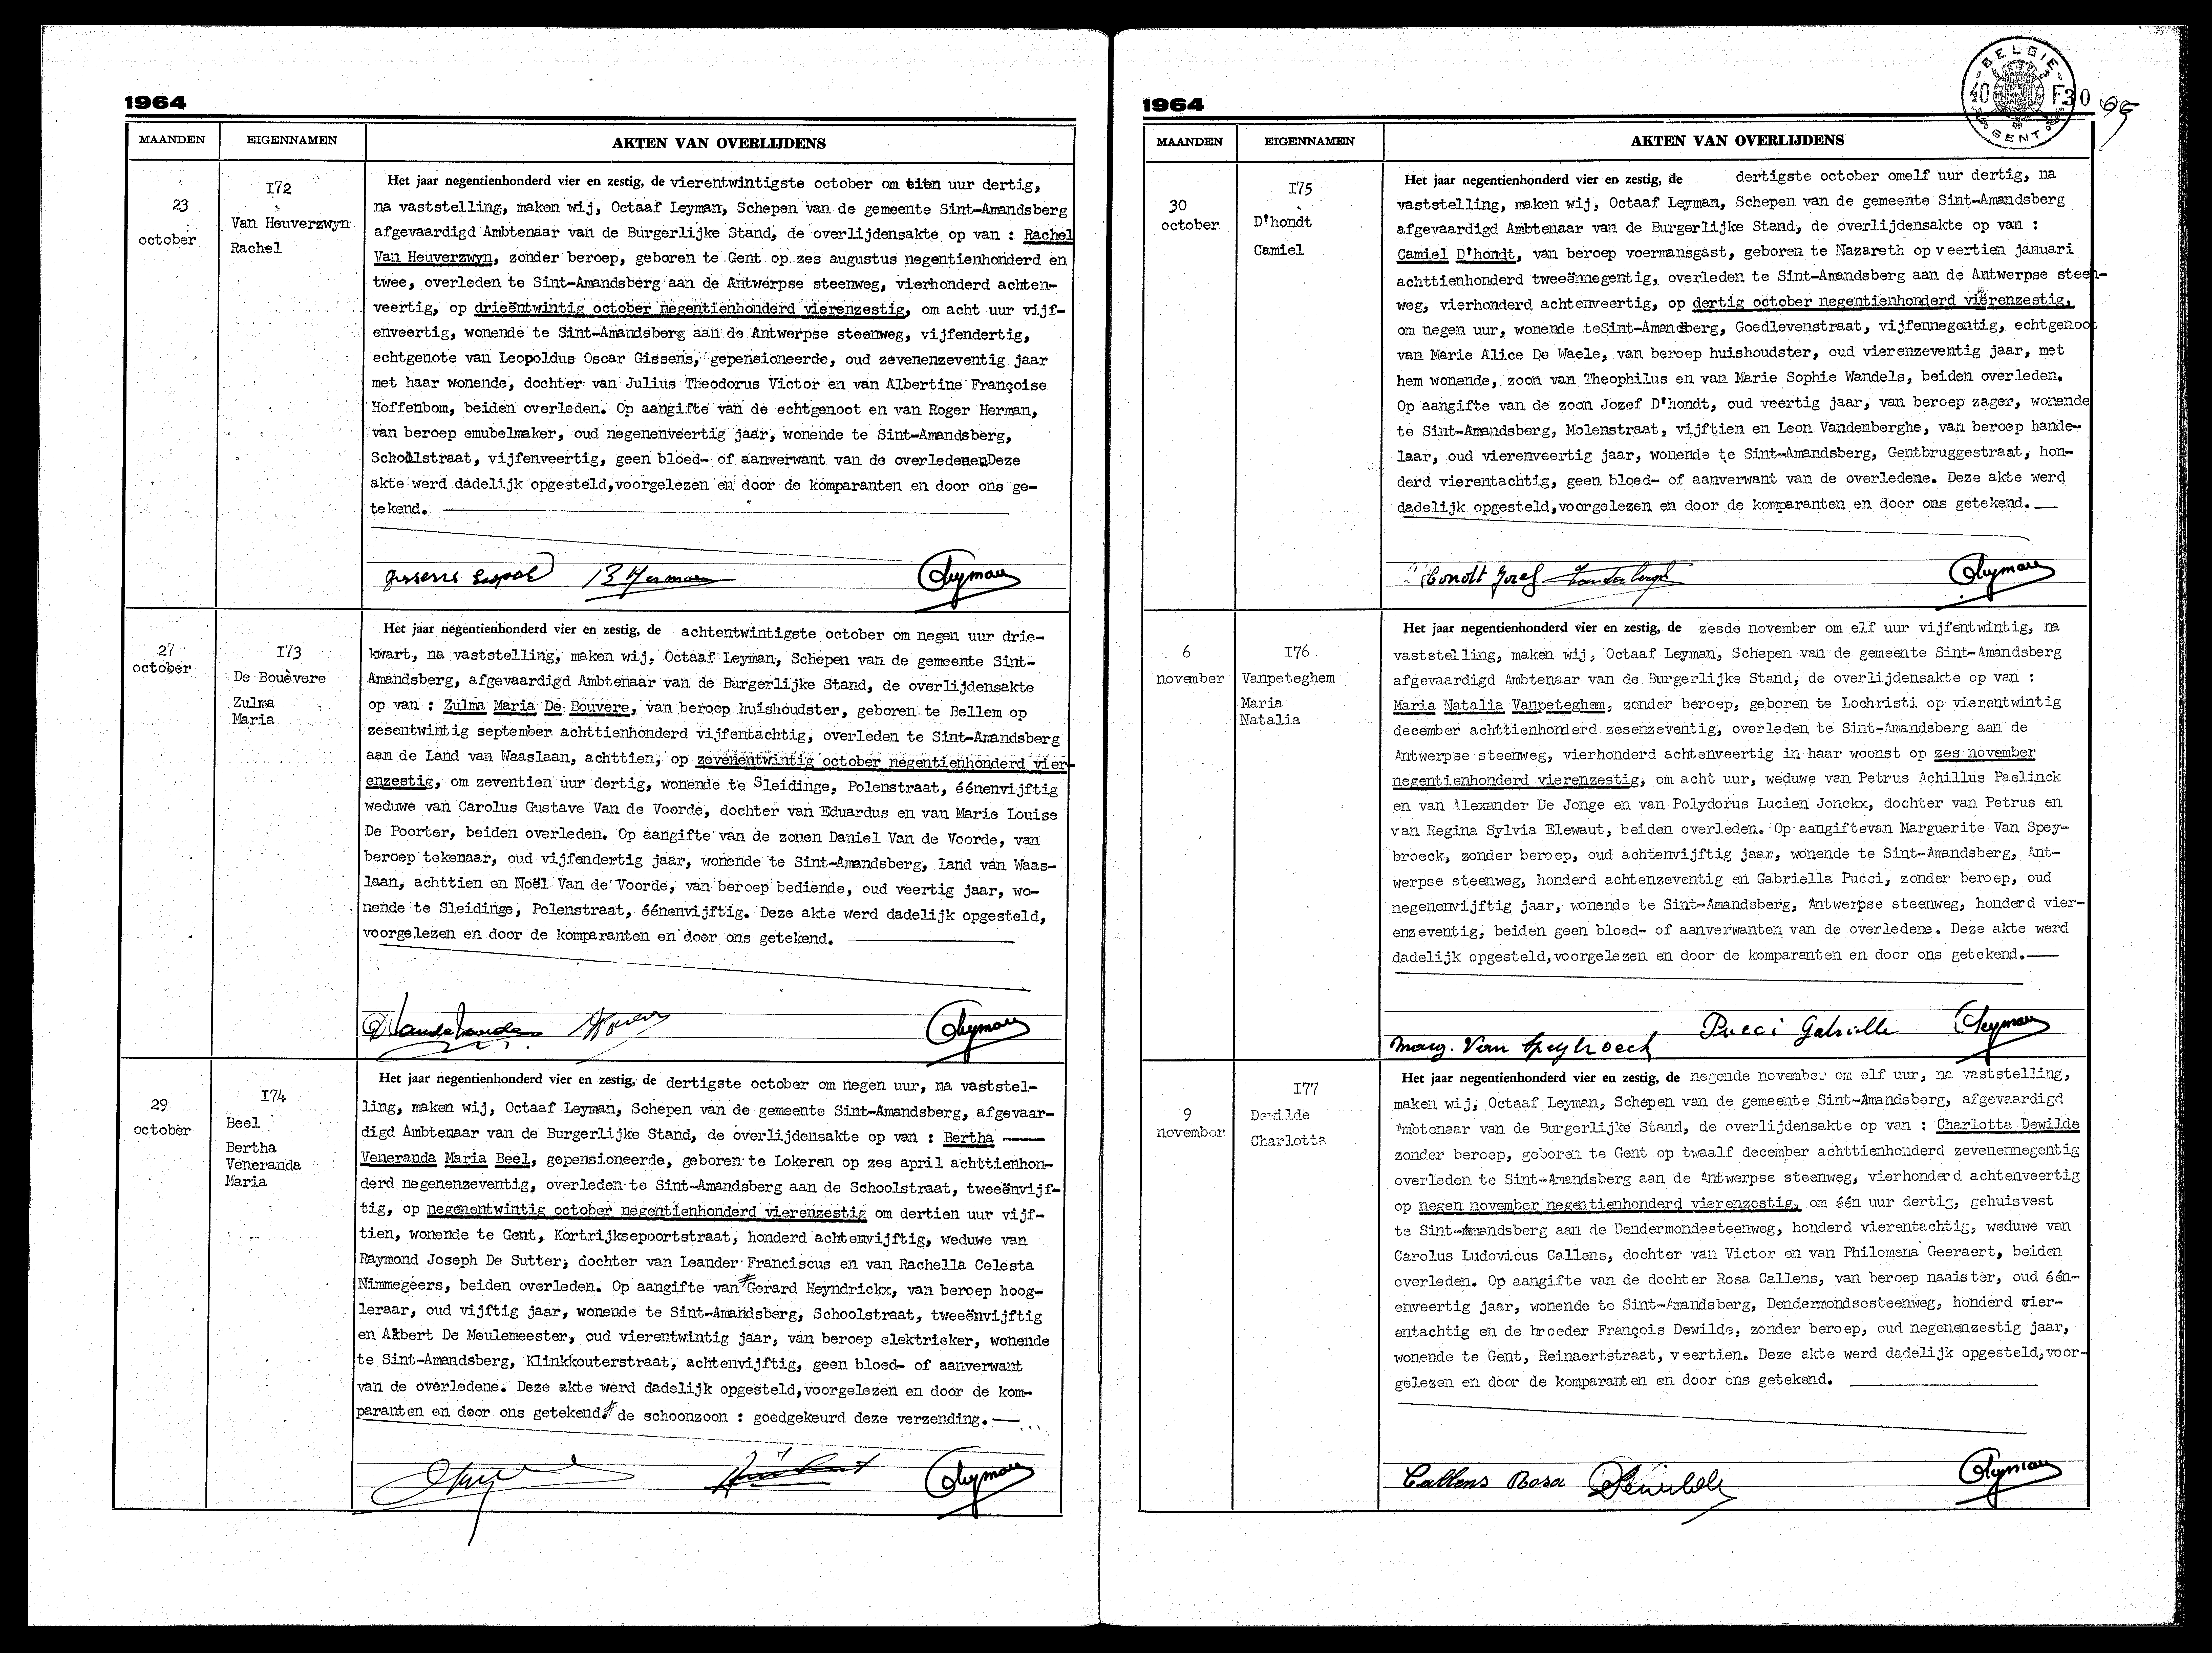 1964
MAANDEN EIGENNAMEN AKTEN VAN OVERLIJDENS
23
october
I72
Van Heuverzwyn
Rachel
Het jaar negentienhonderd vier en zestig, de vierentwintigste october om uur dertig,
na vaststelling, maken wij, Octaaf Leyman, Schepen van de gemeente Sint-Amandsberg
afgevaardigd Ambtenaar van de Burgerlijke Stand, de overlijdensakte op van : Rachel
Van Heuverzwyn, zonder beroep, geboren te Gent op zes augustus negentienhonderd en
twee, overleden te Sint-Amandsberg aan de Antwerpse steenweg, vierhonderd achten-
veertig, op drieëntwintig october negentienhonderd vierenzestig, om acht uur vijf-
enveertig, wonende te Sint-Amandsberg aan de Antwerpse steenweg, vijfendertig,
echtgenote van Leopoldus Oscar Gissens, gepensioneerde, oud zevenenzeventig jaar
met haar wonende, dochter van Julius Theodorus Victor en van Albertine Françoise
Hoffenbom, beiden overleden. Op aangifte van de echtgenoot en van Roger Herman,
van beroep emubelmaker, oud negenenveertig jaar, wonende te Sint-Amandsberg,
Schoolstraat, vijfenveertig, geen bloed- of aanverwant van de overledenenDeze
akte werd dadelijk opgesteld,voorgelezen en door de komparanten en door ons ge-
tekend.
Gissens Leopol R Herman OLeyman
27
october
I73
De Bouèvere
Zulma
Maria
Het jaar negentienhonderd vier en zestig, de achtentwintigste october om negen uur drie-
kwart, na vaststelling, maken wij, Octaaf Leyman, Schepen van de gemeente Sint-
Amandsberg, afgevaardigd Ambtenaar van de Burgerlijke Stand, de overlijdensakte
op van : Zulma Maria De Bouvere, van beroep huishoudster, geboren te Bellem op
zesentwintig september achttienhonderd vijfentachtig, overleden te Sint-Amandsberg
aan de Land van Waaslaan, achttien, op zevenentwintig october negentienhonderd vier-
enzestig, om zeventien uur dertig, wonende te Sleidinge, Polenstraat, éénenvijftig
weduwe van Carolus Gustave Van de Voorde, dochter van Eduardus en van Marie Louise
De Poorter, beiden overleden. Op aangifte van de zonen Daniel Van de Voorde, van
beroep tekenaar, oud vijfendertig jaar, wonende te Sint-Amandsberg, Land van Waas-
laan, achttien en Noël Van de Voorde, van beroep bediende, oud veertig jaar, wo-
nende te Sleidinge, Polenstraat, éénenvijftig. Deze akte werd dadelijk opgesteld,
voorgelezen en door de komparanten en door ons getekend.
OLeyman
29
october
I74
Beel
Bertha
Veneranda
Maria
Het jaar negentienhonderd vier en zestig, de dertigste october om negen uur, na vaststel-
ling, maken wij, Octaaf Leyman, Schepen van de gemeente Sint-Amandsberg, afgevaar-
digd Ambtenaar van de Burgerlijke Stand, de overlijdensakte op van : Bertha
Veneranda Maria Beel, gepensioneerde, geboren te Lokeren op zes april achttienhon-
derd negenenzeventig, overleden te Sint-Amandsberg aan de Schoolstraat, tweeënvijf-
tig, op negenentwintig october negentienhonderd vierenzestig om dertien uur vijf-
tien, wonende te Gent, Kortrijksepoortstraat, honderd achtenvijftig, weduwe van
Raymond Joseph De Sutter, dochter van Leander Franciscus en van Rachella Celesta
Nimmegeers, beiden overleden. Op aangifte van Gerard Heyndrickx, van beroep hoog-
leraar, oud vijftig jaar, wonende te Sint-Amandsberg, Schoolstraat, tweeënvijftig
en Albert De Meulemeester, oud vierentwintig jaar, van beroep elektrieker, wonende
te Sint-Amandsberg, Klinkkouterstraat, achtenvijftig, geen bloed- of aanverwant
van de overledene. Deze akte werd dadelijk opgesteld,voorgelezen en door de kom-
paranten en door ons getekend. de schoonzoon : goedgekeurd deze verzending.
OLeyman
1964
BELGIE
40 F30
GENT
MAANDEN EIGENNAMEN AKTEN VAN OVERLIJDENS
30
october
I75
D'hondt
Camiel
Het jaar negentienhonderd vier en zestig, de dertigste october omelf uur dertig, na
vaststelling, maken wij, Octaaf Leyman, Schepen van de gemeente Sint-Amandsberg
afgevaardigd Ambtenaar van de Burgerlijke Stand, de overlijdensakte op van :
Camiel D'hondt, van beroep voermansgast, geboren te Nazareth op veertien januari
achttienhonderd tweeënnegentig, overleden te Sint-Amandsberg aan de Antwerpse steen-
weg, vierhonderd achtenveertig, op dertig october negentienhonderd vierenzestig,
om negen uur, wonende teSint-Amandsberg, Goedlevenstraat, vijfennegentig, echtgenoot
van Marie Alice De Waele, van beroep huishoudster, oud vierenzeventig jaar, met
hem wonende, zoon van Theophilus en van Marie Sophie Wandels, beiden overleden.
Op aangifte van de zoon Jozef D'hondt, oud veertig jaar, van beroep zager, wonende
te Sint-Amandsberg, Molenstraat, vijftien en Leon Vandenberghe, van beroep hande-
laar, oud vierenveertig jaar, wonende te Sint-Amandsberg, Gentbruggestraat, hon-
derd vierentachtig, geen bloed- of aanverwant van de overledene. Deze akte werd
dadelijk opgesteld,voorgelezen en door de komparanten en door ons getekend.
D'hondt Jozef OLeyman
6
november
I76
Vanpeteghem
Maria
Natalia
Het jaar negentienhonderd vier en zestig, de zesde november om elf uur vijfentwintig, na
vaststelling, maken wij, Octaaf Leyman, Schepen van de gemeente Sint-Amandsberg
afgevaardigd Ambtenaar van de Burgerlijke Stand, de overlijdensakte op van :
Maria Natalia Vanpeteghem, zonder beroep, geboren te Lochristi op vierentwintig
december achttienhonderd zesenzeventig, overleden te Sint-Amandsberg aan de
Antwerpse steenweg, vierhonderd achtenveertig in haar woonst op zes november
negentienhonderd vierenzestig, om acht uur, weduwe van Petrus Achillus Paelinck
en van Alexander De Jonge en van Polydorus Lucien Jonckx, dochter van Petrus en
van Regina Sylvia Elewaut, beiden overleden. Op aangiftevan Marguerite Van Spey-
broeck, zonder beroep, oud achtenvijftig jaar, wonende te Sint-Amandsberg, Ant-
werpse steenweg, honderd achtenzeventig en Gabriella Pucci, zonder beroep, oud
negenenvijftig jaar, wonende te Sint-Amandsberg, Antwerpse steenweg, honderd vier-
enzeventig, beiden geen bloed- of aanverwanten van de overledene. Deze akte werd
dadelijk opgesteld,voorgelezen en door de komparanten en door ons getekend.
Marg. Van Speybroeck Pucci Gabrielle OLeyman
9
november
I77
Dewilde
Charlotta
Het jaar negentienhonderd vier en zestig, de negende november om elf uur, na vaststelling,
maken wij, Octaaf Leyman, Schepen van de gemeente Sint-Amandsberg, afgevaardigd
Ambtenaar van de Burgerlijke Stand, de overlijdensakte op van : Charlotta Dewilde
zonder beroep, geboren te Gent op twaalf december achttienhonderd zevenennegentig
overleden te Sint-Amandsberg aan de Antwerpse steenweg, vierhonderd achtenveertig
op negen november negentienhonderd vierenzestig, om één uur dertig, gehuisvest
te Sint-Amandsberg aan de Dendermondesteenweg, honderd vierentachtig, weduwe van
Carolus Ludovicus Callens, dochter van Victor en van Philomena Geeraert, beiden
overleden. Op aangifte van de dochter Rosa Callens, van beroep naaister, oud één-
enveertig jaar, wonende te Sint-Amandsberg, Dendermondsesteenweg, honderd vier-
entachtig en de broeder François Dewilde, zonder beroep, oud negenenzestig jaar,
wonende te Gent, Reinaertstraat, veertien. Deze akte werd dadelijk opgesteld,voor-
gelezen en door de komparanten en door ons getekend.
Callens Rosa Dewilde OLeyman